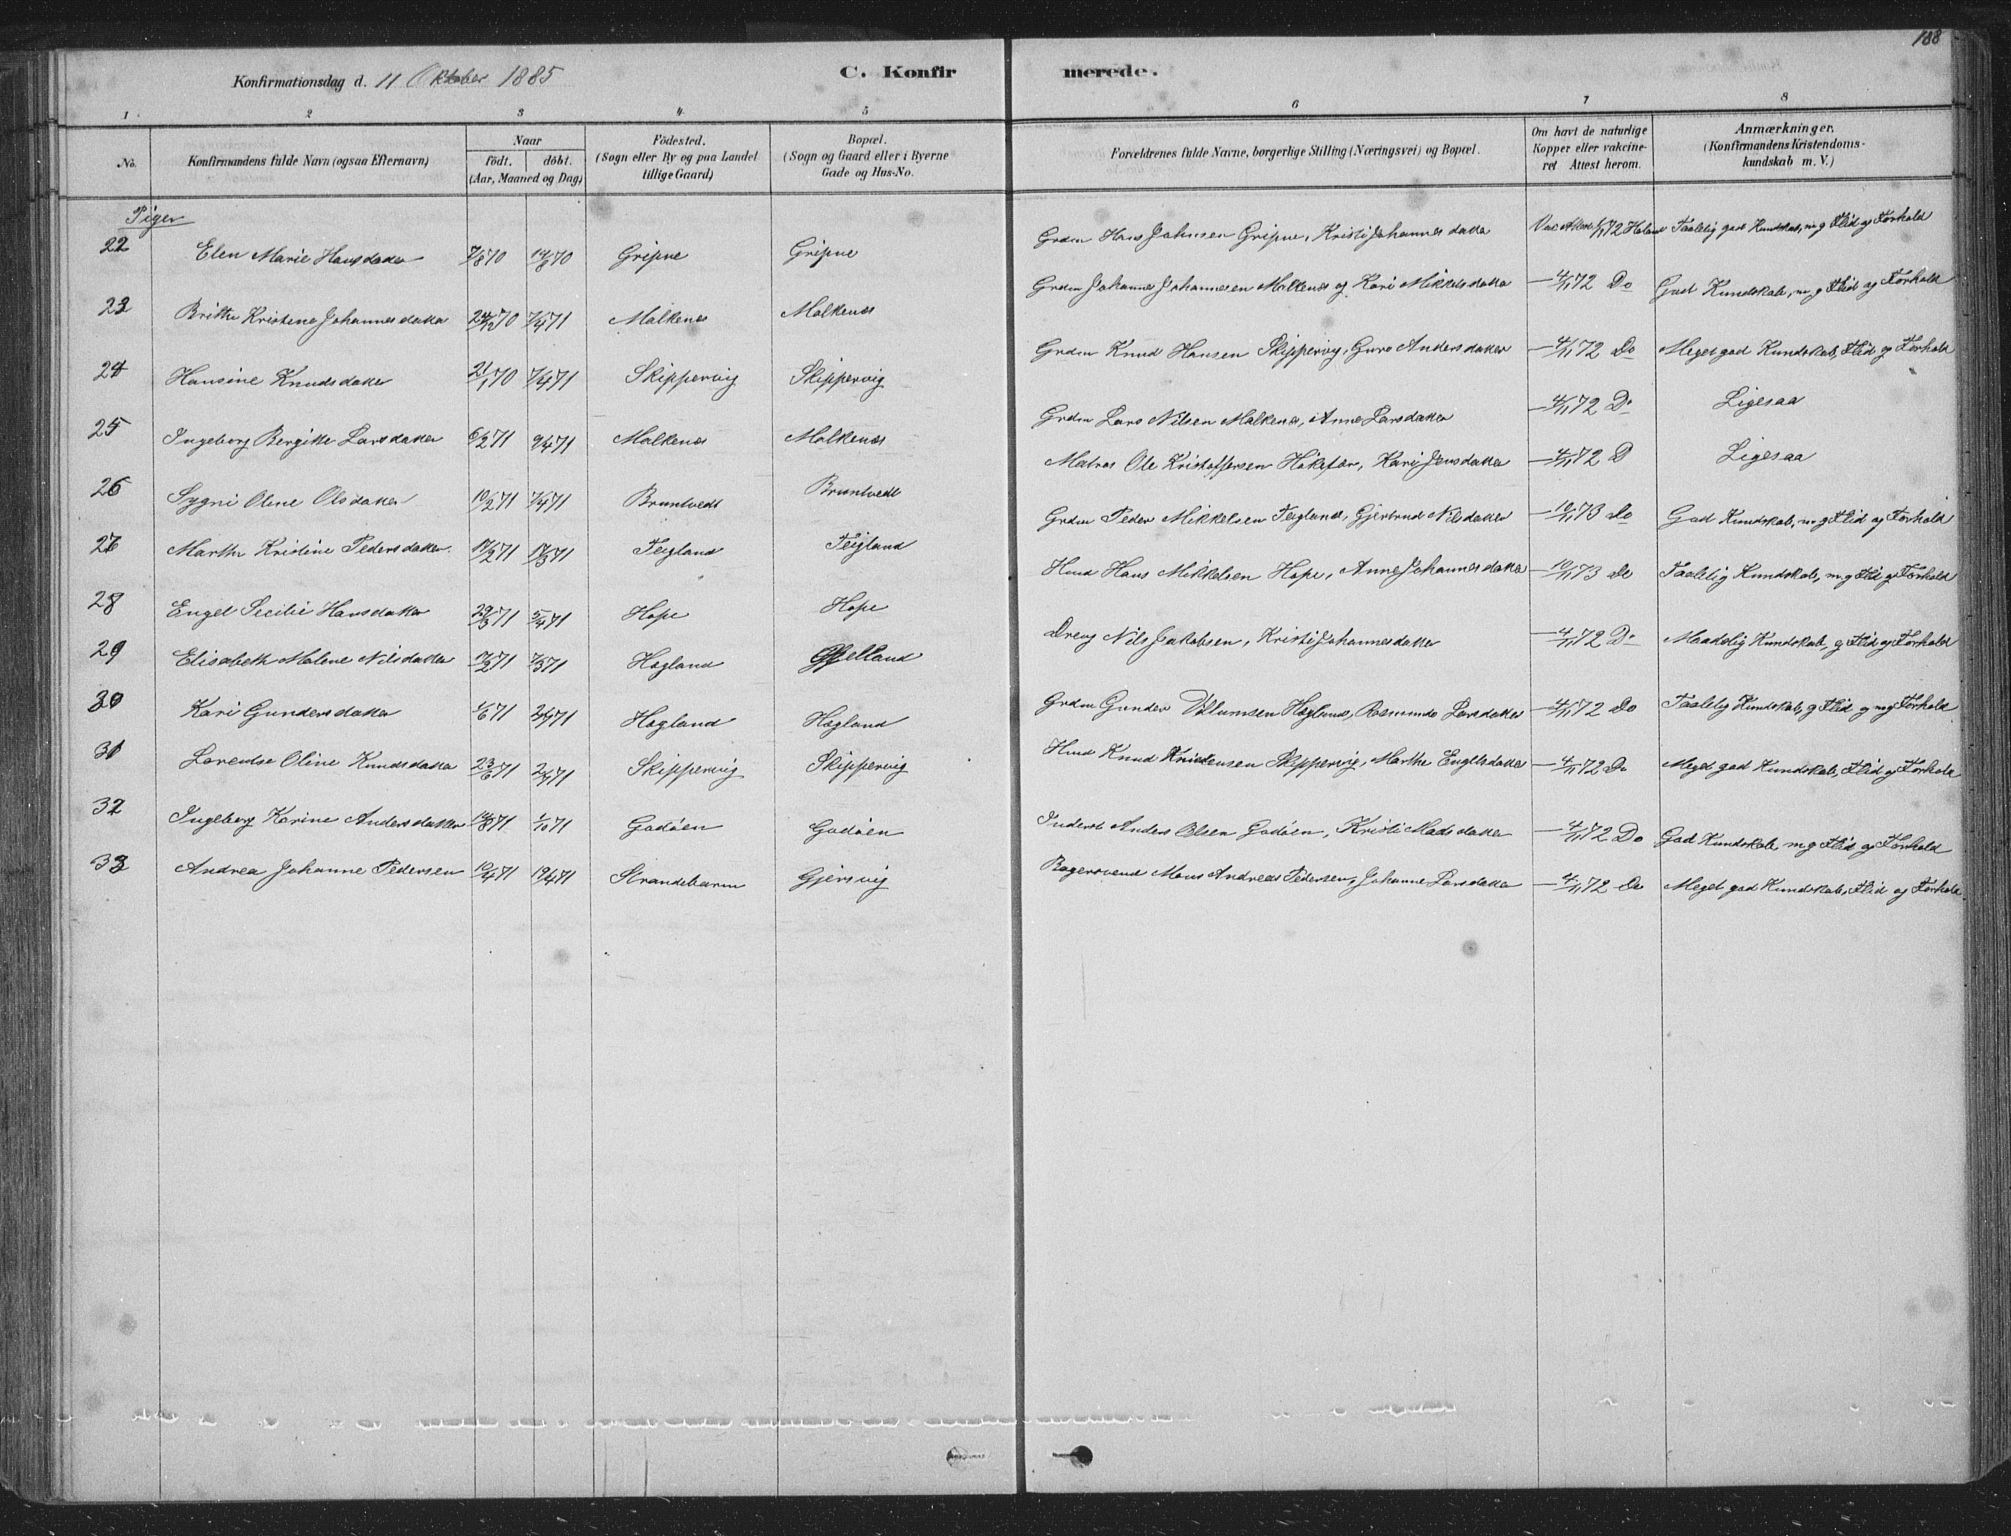 188
Konfirmationsdag d. 11 Oktober 1885 C. Konfirmerede.
1 2 3 4 5 6 7 8
No. Konfirmandens fulde Navn (ogsaa Efternavn) Naar födt. döbt. (Aar, Maaned og Dag) Födested. (Sogn eller By og paa Landet tillige Gaard) Bopæl. (Sogn og Gaard eller i Byerne Gade og Hus-No. Forældrenes fulde Navne, borgerlige Stilling (Næringsvei) og Bopæl. Om havt de naturlige Kopper eller vakcineret Attest herom. Anmærkninger. (Konfirmandens Kristendomskundskab m. V.)
Piger
22 Elen Marie Hansdatter 7/8 70 14/8 70 Gripne Gripne Grdm Hans Johnsen Gripne, Kristi Johannesdatter Vac 4/11 72 Taalelig god Kundskab, mg Flid og Forhold
23 Brithe Kristene Johannesdatter 24/12 70 7/4 71 Malkenes Malkenes Grdm Johannes Johannesen Malkenes og Kari Mikkelsdatter 4/11 72 Do God Kundskab, mg Flid og Forhold
24 Hansine Knudsdatter 21/1 70 7/4 71 Skippervig Skippervig Grdm Knud Hansen Skippervig, Guro Andersdatter 4/11 72 Do Meget god Kundskab, Flid og Forhold
25 Ingeborg Bergitte Larsdatter 6/2 71 9/4 71 Malkenes Malkenes Grdm Lars Nilsen Malkenes, Anne Larsdatter 4/11 72 Do Ligesaa
26 Sygni Oline Olsdatter 10/2 71 7/4 71 Bruntvedt Bruntvedt Matros Ole Kristoffersen, Kari Jensdatter 4/11 72 D Ligesaa
27 Marthe Kristine Pedersdatter 17/2 71 17/3 71 Teigland Teigland Grdm Peder Mikkelsen Teigland, Gjertrud Nilsdatter 10/11 73 Do God Kundskab, mg Flid og Forhold
28 Engel Secilie Hansdatter 29/3 71 5/4 71 Hope Hope Hmd Hans Mikkelsen Hope, Anne Johannesdatter 10/11 73 Do Taalelig Kundskab, mg Flid og Forhold
29 Elisabeth Malene Nilsdatter 17/2 71 7/5 71 Hogland Gjelland Dreng Nils Jakobsen, Kristi Johannesdatter 4/11 72 Do Maadelig Kundskab, g Flid og Forhold
30 Kari Gundersdatter 1/6 71 71 Hogland Hogland Grdm Gunder Villumsen Hogland, Rasmunde Larsdatter 4/11 72 Do Taalelig Kundskab, g Flid og mg Forhold
31 Lorentse Oline Knudsdatter 23/6 71 71 Skippervig Skippervig Hmd Knud Kristensen Skippervig, Marthe Engelsdatter 4/11 72 Do Meget god Kundskab, Flid og Forhold
32 Ingeborg Karine Andersdatter 14/8 71 1/10 71 Godöen Godöen Inderst Anders Olsen Godöen, Kristi Madsdatter 4/11 72 Do God Kundskab, mg Flid og Forhold
33 Andrea Johanne Pedersen 10/4 71 19/4 71 Strandebarm Gjersvig Bagersvend Mons Andreas Pedersen, Johanne Larsdatter 4/11 72 Do Meget god Kundskab, Flid og Forhold.